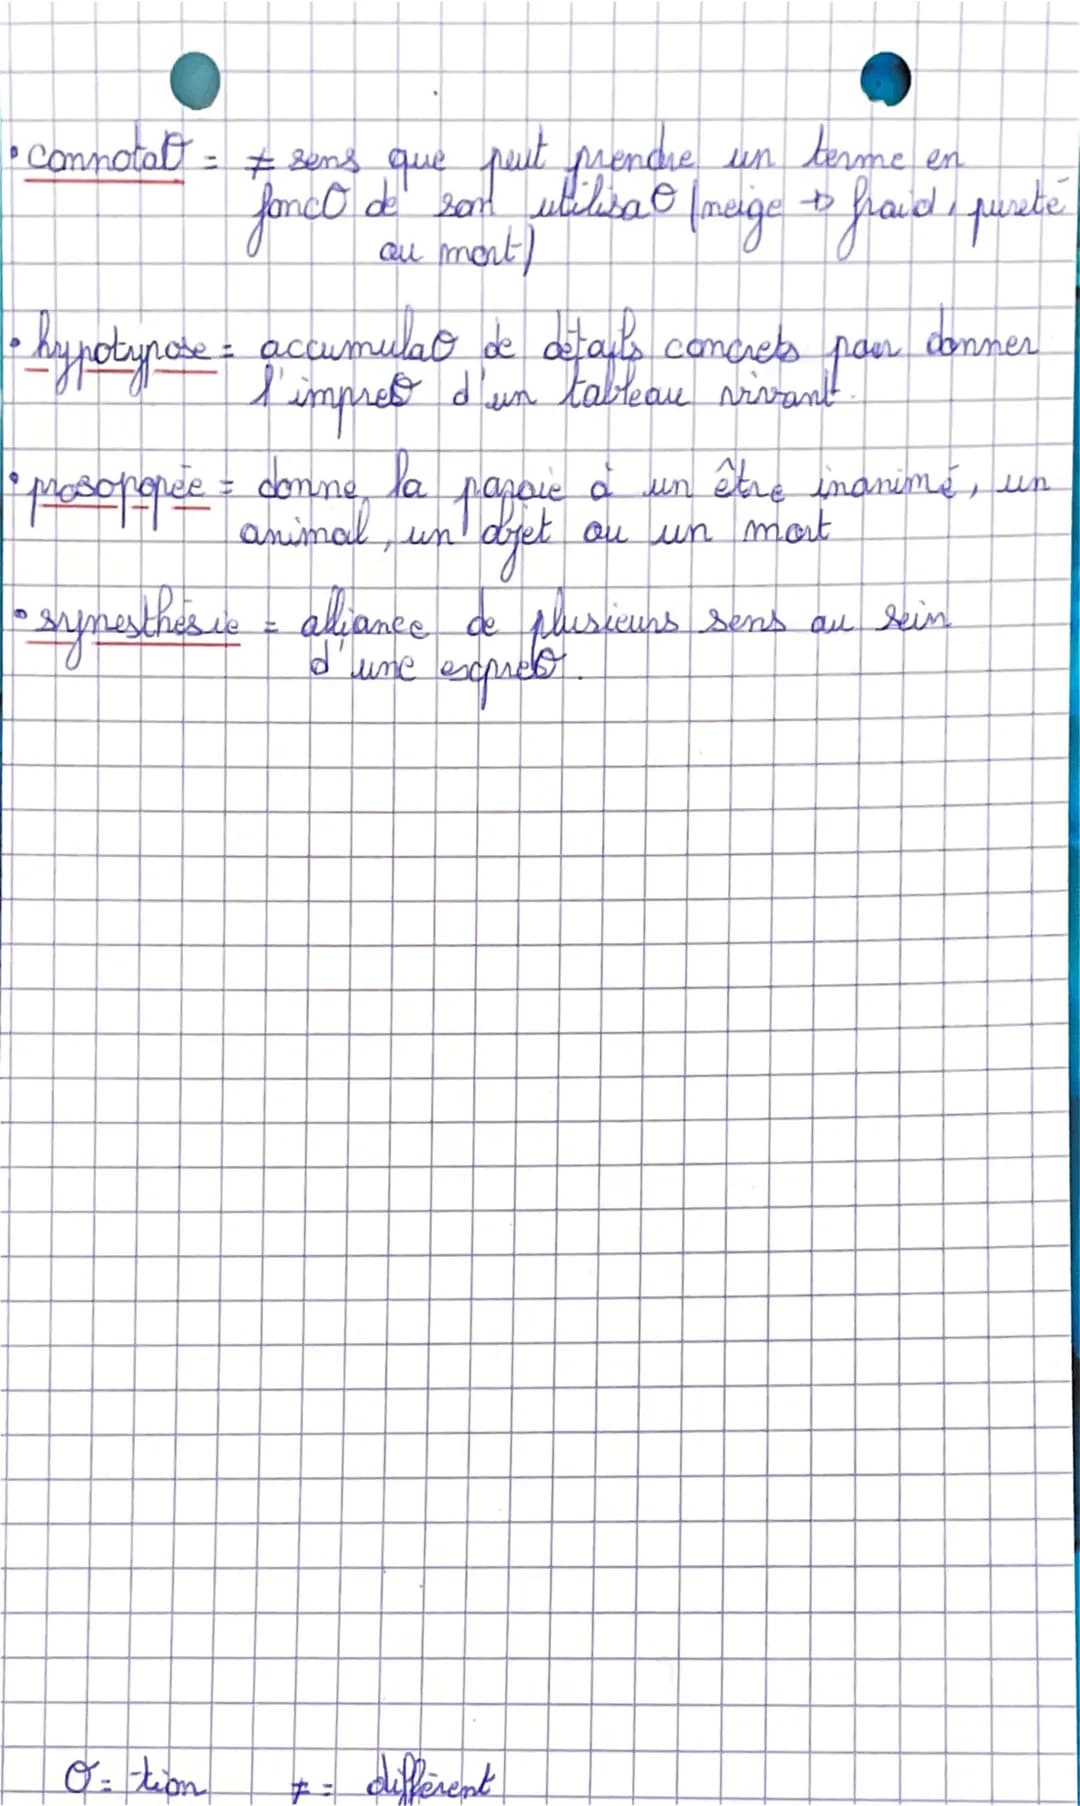 • connotaσ = ≠ sens que peut prendre un terme en
foncσ de son utilisaσ (neige → froid, pureté
ou mort)
• hypotypose = accumulaσ de détails concrets pour donner
l'impresσ d'un tableau vivant.
• prosopopée = donne la parole à un être inanimé, un
animal, un objet ou un mort
• synesthésie = alliance de plusieurs sens au sein
d'une expresσ.
σ = tion ≠ = différent